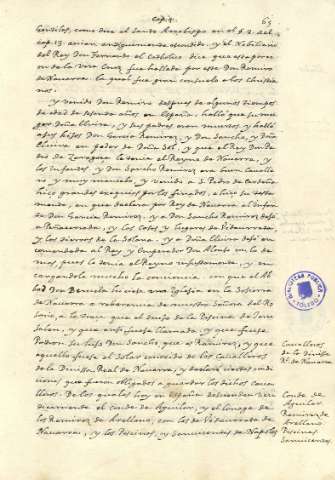 Cap. 12.
65
Gentiles, como dice el Santo Arzobispo en el § 2. del
cap. 13. avian antiguamente escondido, y el Nobiliario
del Rey Don Fernando el Catholico dice que esta porcion
de la vera Cruz fue hallada por este Don Ramiro
de Navarra, la qual fue gran consuelo a los Christia
nos.
y venido Don Ramiro despues de algunos tiempos
de edad de sesenta años en España, halló que su mu
ger Doña Elvira, y sus padres eran muertos, y halló
a sus hijos Don Garcia Ramirez, y Don Sancho, y Dña
Elvira en poder de Doña Sol, y que el Rey Don
de Zaragoza le tenia el Reyno de Navarra, y
los Infantes, y Don Sancho Ramirez era buen Cavalle
ro y muy manuelo, y venido a S. Pedro de Cardeña
hizo grandes exequias por los finados, e hizo su testa
mento, en que declara por Rey de Navarra al Infan
te Don Garcia Ramirez, y a Don Sancho Ramirez dejó
a Peñacerrada, y los Cotos, y lugares de Vidaurreta,
y los divisos de la Solana, y a Doña Elvira dejó en
comendada al Rey, y Emperador Don Alonso
mas pues le tenia el Reyno injustamente, y en
cargandole mucho la conciencia con que el Ab
bad Don Bermudo hiciese una Iglesia en la
de Navarra a reberencia de nuestra Señora del Ro
sario, a la traza que el de la Piscina de Jeru
salen, y que assi fuese llamada, y que fuese
Patron su hijo Don Sancho, que es Ramirez, y que
aquello fuese el solar conocido de los Cavalleros
de la Divisa Real de Navarra, y declara ciertas condi
ciones, que fueron obligados a guardar los dichos Cava
lleros. De los quales hoy en España descienden ver
daderamente el Conde de Aguilar, y el linage de
los Ramirez de Arellano, con los de Vidaurreta de
Navarra, y los Piscinas, y Samunicenses de Napoles
Cavalleros
de la Divisa
Rl. de Navarra
Conde de
Aguilar
Ramirez de
Arellano
Piscinas
BIBLIOTECA PUBLICA
TOLEDO